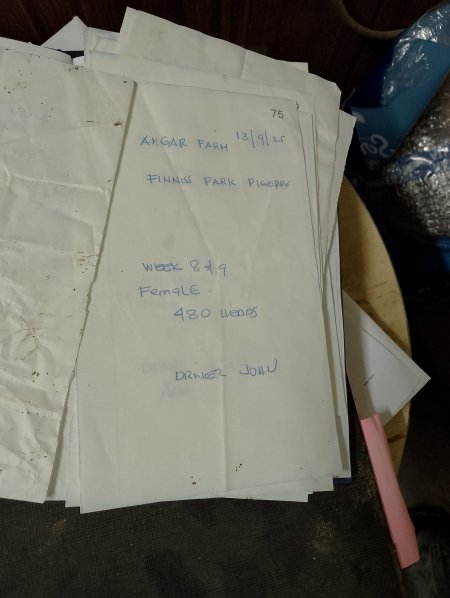 75
ANGAR FARM 13/4/25
FINNISS PARK PIGERRY
WEEK 8 & 9
Female -
480 HEADS
DRIVER JOHN